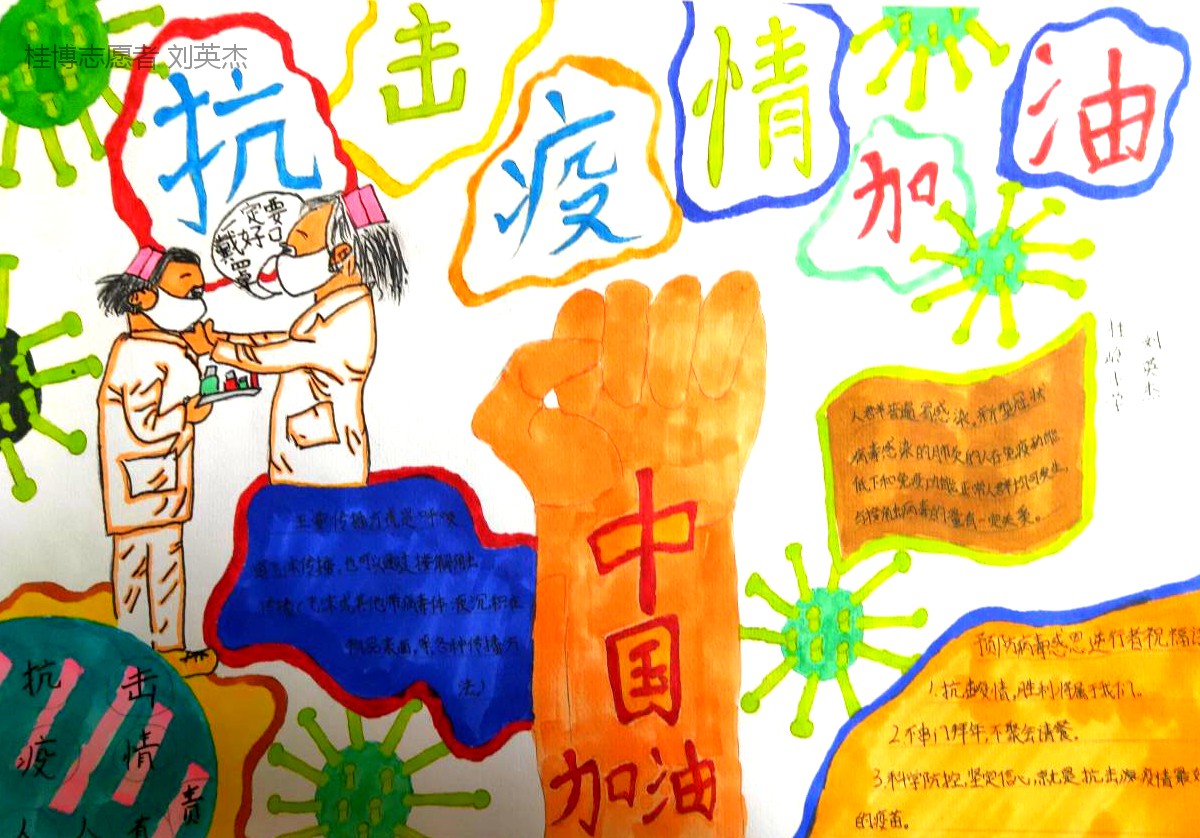 桂博志愿者 刘英杰
抗击疫情加油
一定要
戴好口
罩
刘英杰
人群普遍易感染,新型冠状
病毒感染的肺炎的人在免疫功能
低下和免疫功能正常人群均可发生,
与接触出病毒的量有一定关系。
主要传播方式是呼吸
道飞沫传播,也可以通过接触
传播(飞沫或其他带病毒体液沉积在
物品表面,等各种传播方
法)
中国
加油
预防病毒感恩逆行者祝福
1.抗击疫情,胜利将属于我们。
2.不串门拜年,不聚会请餐。
3.科学防控,坚定信心,就是抗击 疫情最
的疫苗。
抗击
疫情
人人有责